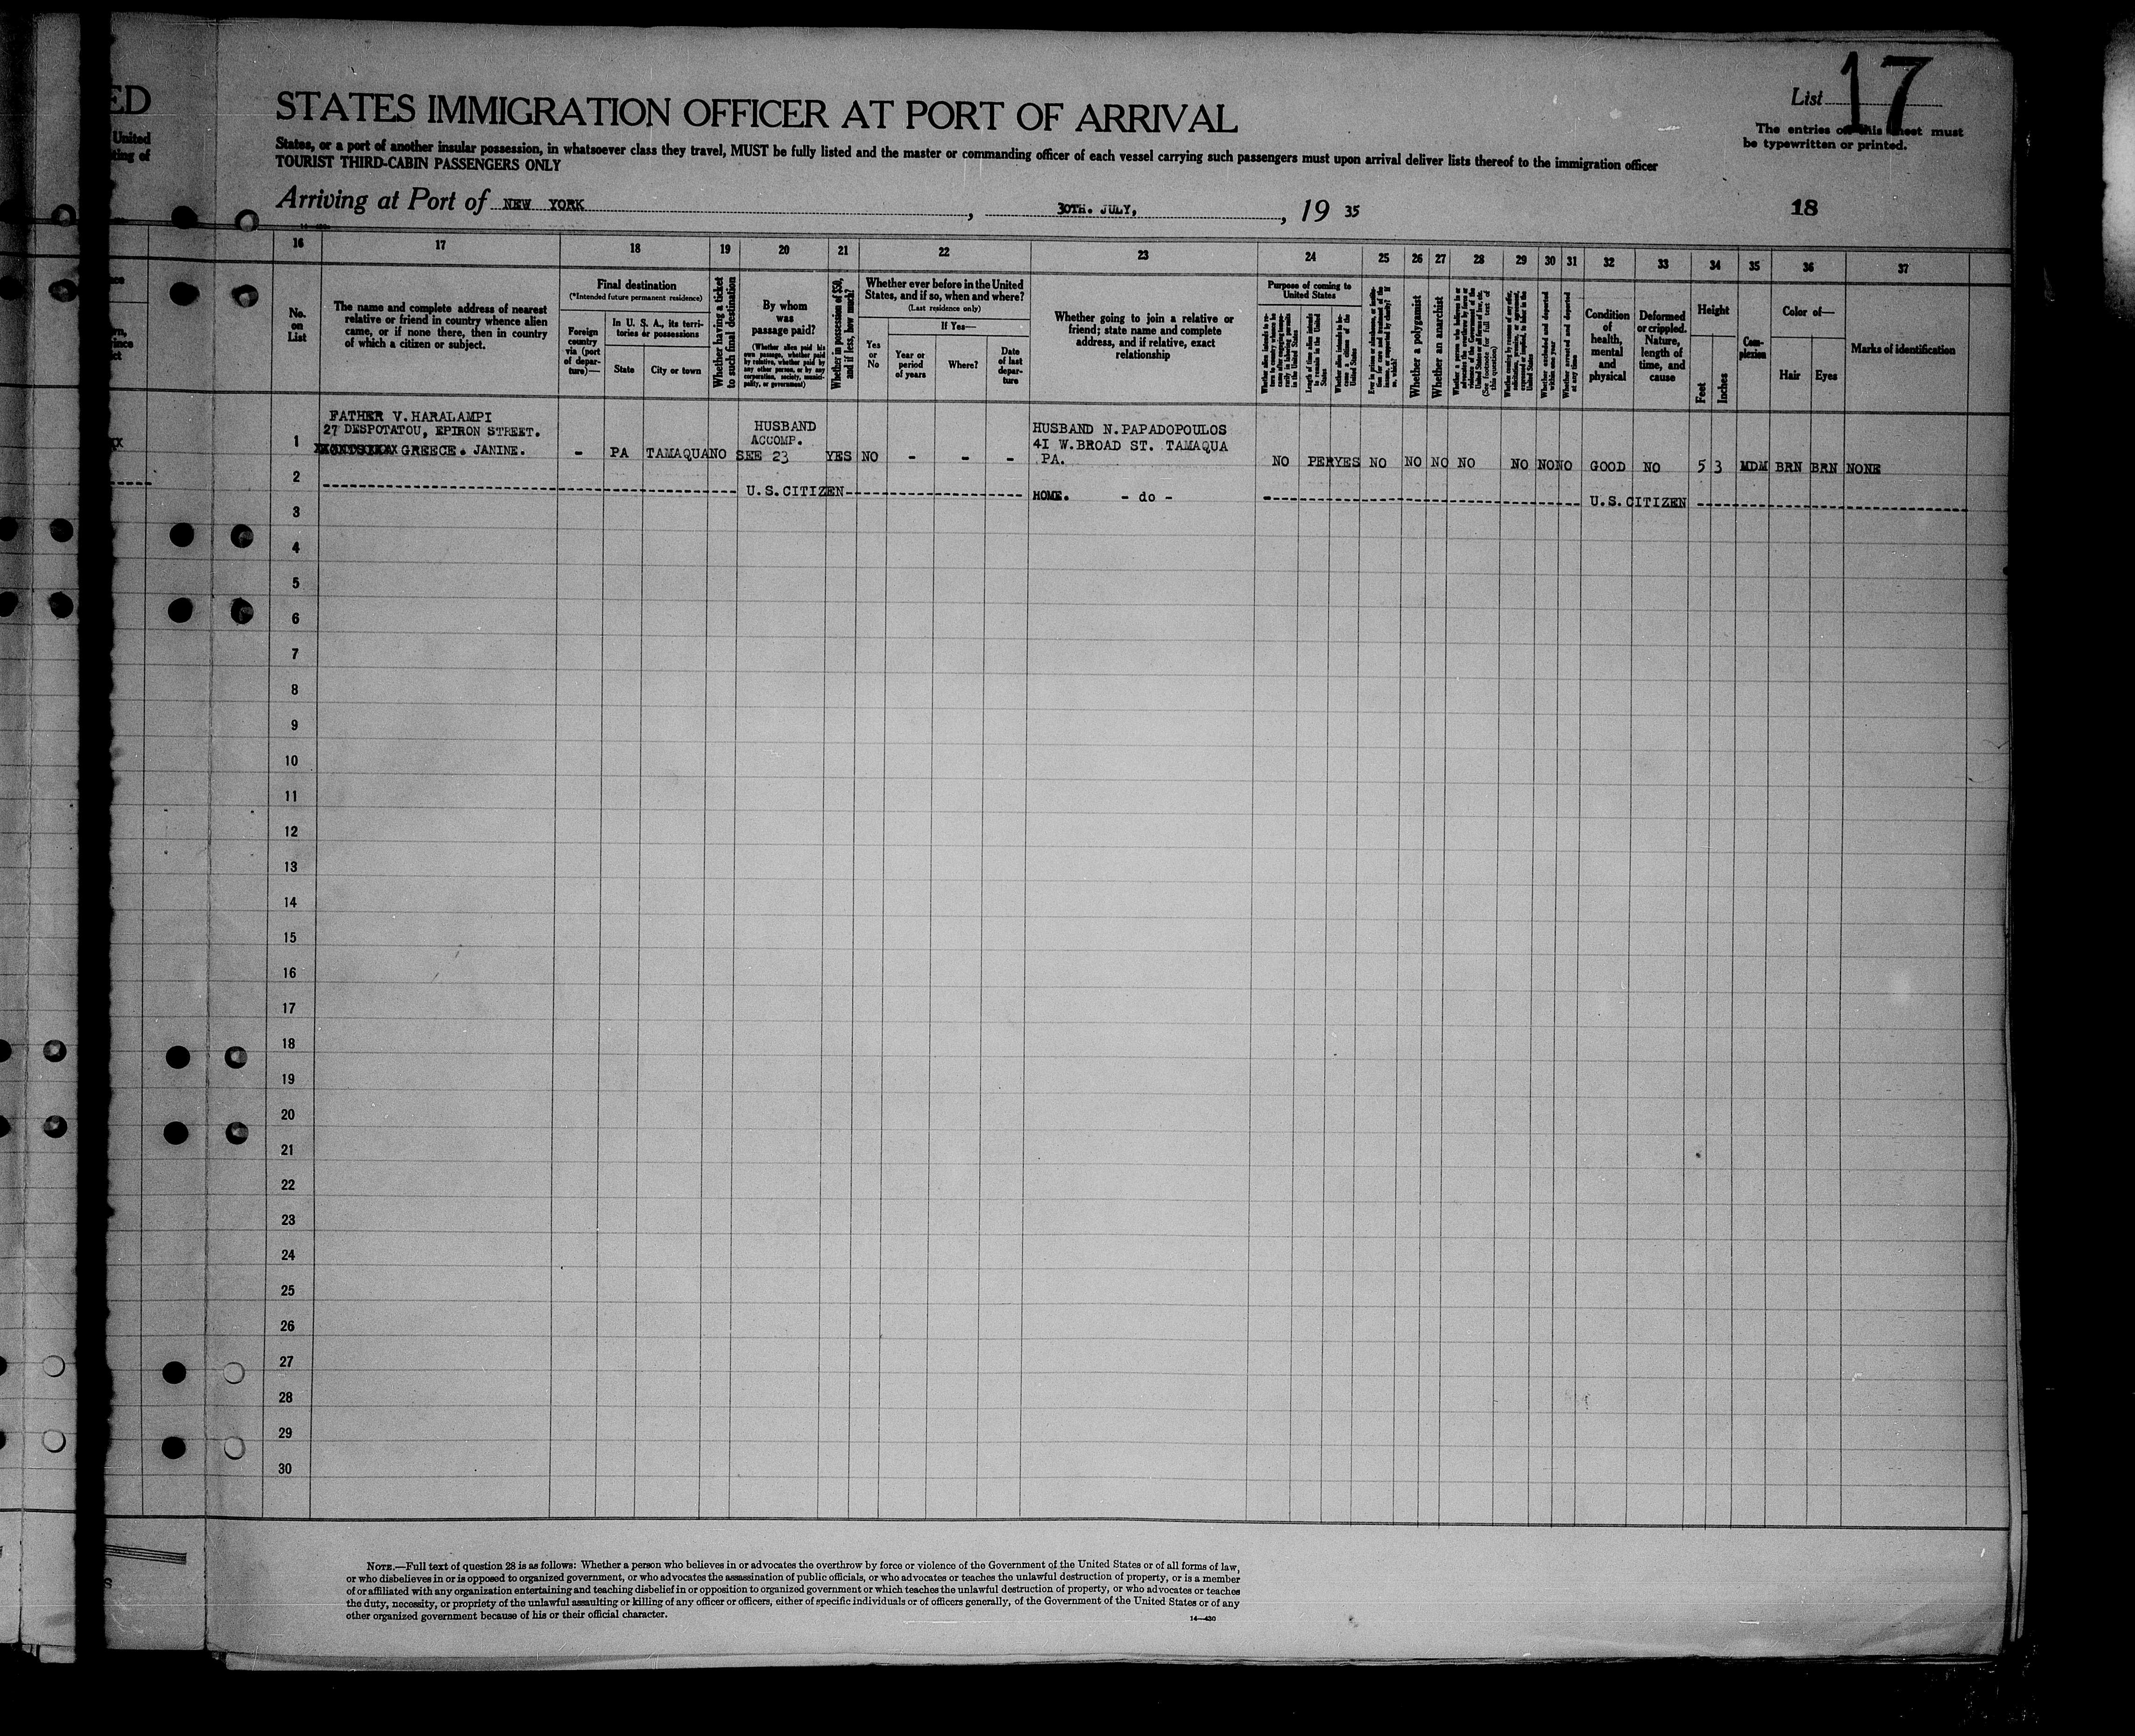 ED
United
ting of
STATES IMMIGRATION OFFICER AT PORT OF ARRIVAL
List 17
The entries on this sheet must
be typewritten or printed.
States, or a port of another insular possession, in whatsoever class they travel, MUST be fully listed and the master or commanding officer of each vessel carrying such passengers must upon arrival deliver lists thereof to the immigration officer
TOURIST THIRD-CABIN PASSENGERS ONLY
Arriving at Port of NEW YORK, 30TH. JULY, 19 35
18
16 17 18 19 20 21 22 23 24 25 26 27 28 29 30 31 32 33 34 35 36 37
No.
on
List
The name and complete address of nearest
relative or friend in country whence alien
came, or if none there, then in country
of which a citizen or subject.
Final destination
(*Intended future permanent residence)
Foreign
country
via (port
of depar-
ture)—
In U. S. A., its terri-
tories or possessions
State
City or town
Whether having a ticket
to such final destination
By whom
was
passage paid?
(Whether alien paid his
own passage, whether paid
by relative, whether paid by
any other person, or by any
corporation, society, munici-
pality, or government)
Whether in possession of $50,
and if less, how much?
Whether ever before in the United
States, and if so, when and where?
(Last residence only)
Yes
or
No
If Yes—
Year or
period
of years
Where?
Date
of last
depar-
ture
Whether going to join a relative or
friend; state name and complete
address, and if relative, exact
relationship
Purpose of coming to
United States
Length of time alien intends
to remain in the United
States
Whether a polygamist
Whether an anarchist
(See footnote for full text of
this question)
Whether arrested and deported
at any time
Condition
of
health,
mental
and
physical
Deformed
or crippled.
Nature,
length of
time, and
cause
Height
Feet
Inches
Com-
plexion
Color of—
Hair
Eyes
Marks of identification
1
FATHER V.HARALAMPI
27 DESPOTATOU, EPIRON STREET.
GREECE. JANINE.
- PA TAMAQUA NO
HUSBAND
ACCOMP.
SEE 23
YES NO - - -
HUSBAND N.PAPADOPOULOS
41 W.BROAD ST. TAMAQUA
PA.
NO PER YES NO NO NO NO NO NO NO GOOD NO 5 3 MDM BRN BRN NONE
2 U.S.CITIZEN HOME. - do - U.S.CITIZEN
3
4
5
6
7
8
9
10
11
12
13
14
15
16
17
18
19
20
21
22
23
24
25
26
27
28
29
30
NOTE.—Full text of question 28 is as follows: Whether a person who believes in or advocates the overthrow by force or violence of the Government of the United States or of all forms of law,
or who disbelieves in or is opposed to organized government, or who advocates the assassination of public officials, or who advocates or teaches the unlawful destruction of property, or is a member
of or affiliated with any organization entertaining and teaching disbelief in or opposition to organized government or which teaches the unlawful destruction of property, or who advocates or teaches
the duty, necessity, or propriety of the unlawful assaulting or killing of any officer or officers, either of specific individuals or of officers generally, of the Government of the United States or of any
other organized government because of his or their official character.
14—430